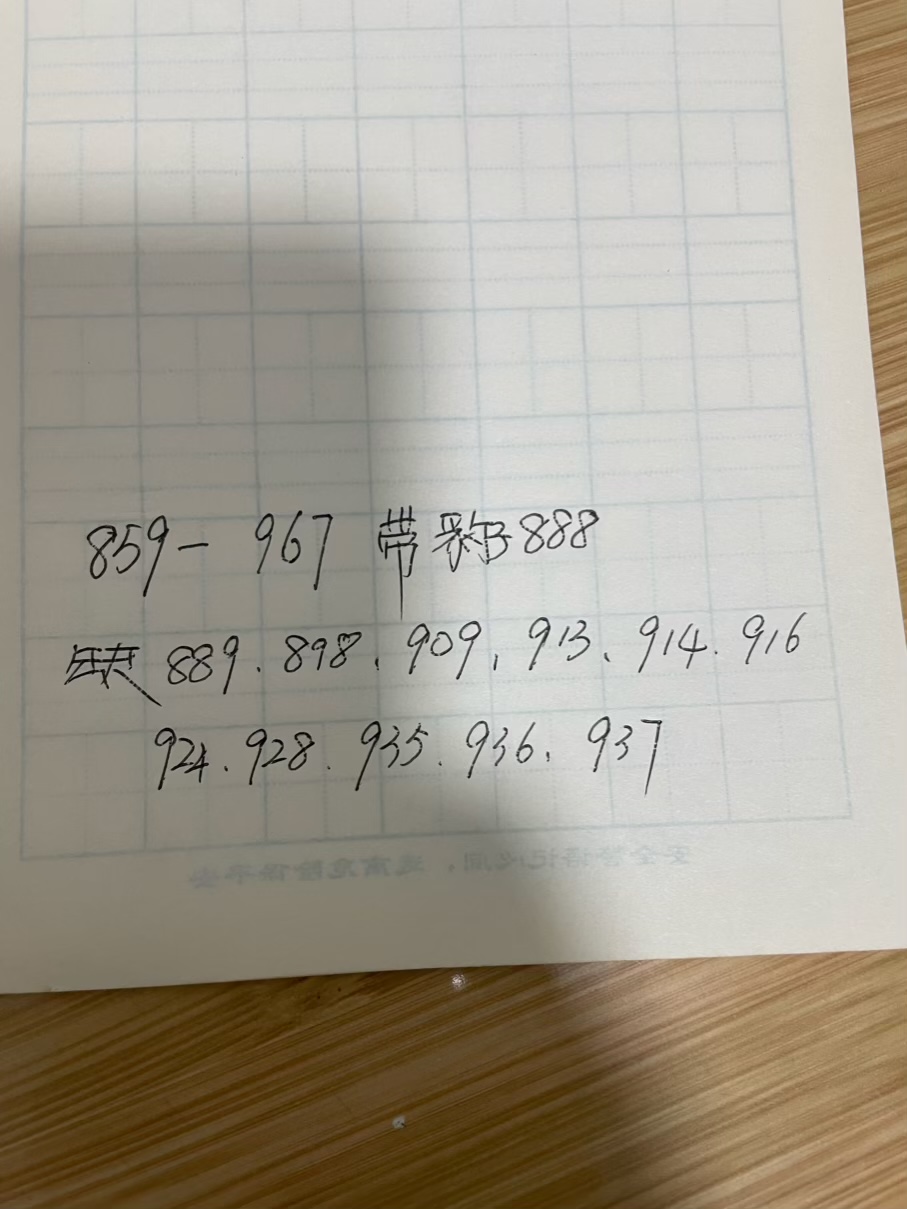 859－967 带彩888
缺 889、898、909、913、914、916
924、928、935、936、937